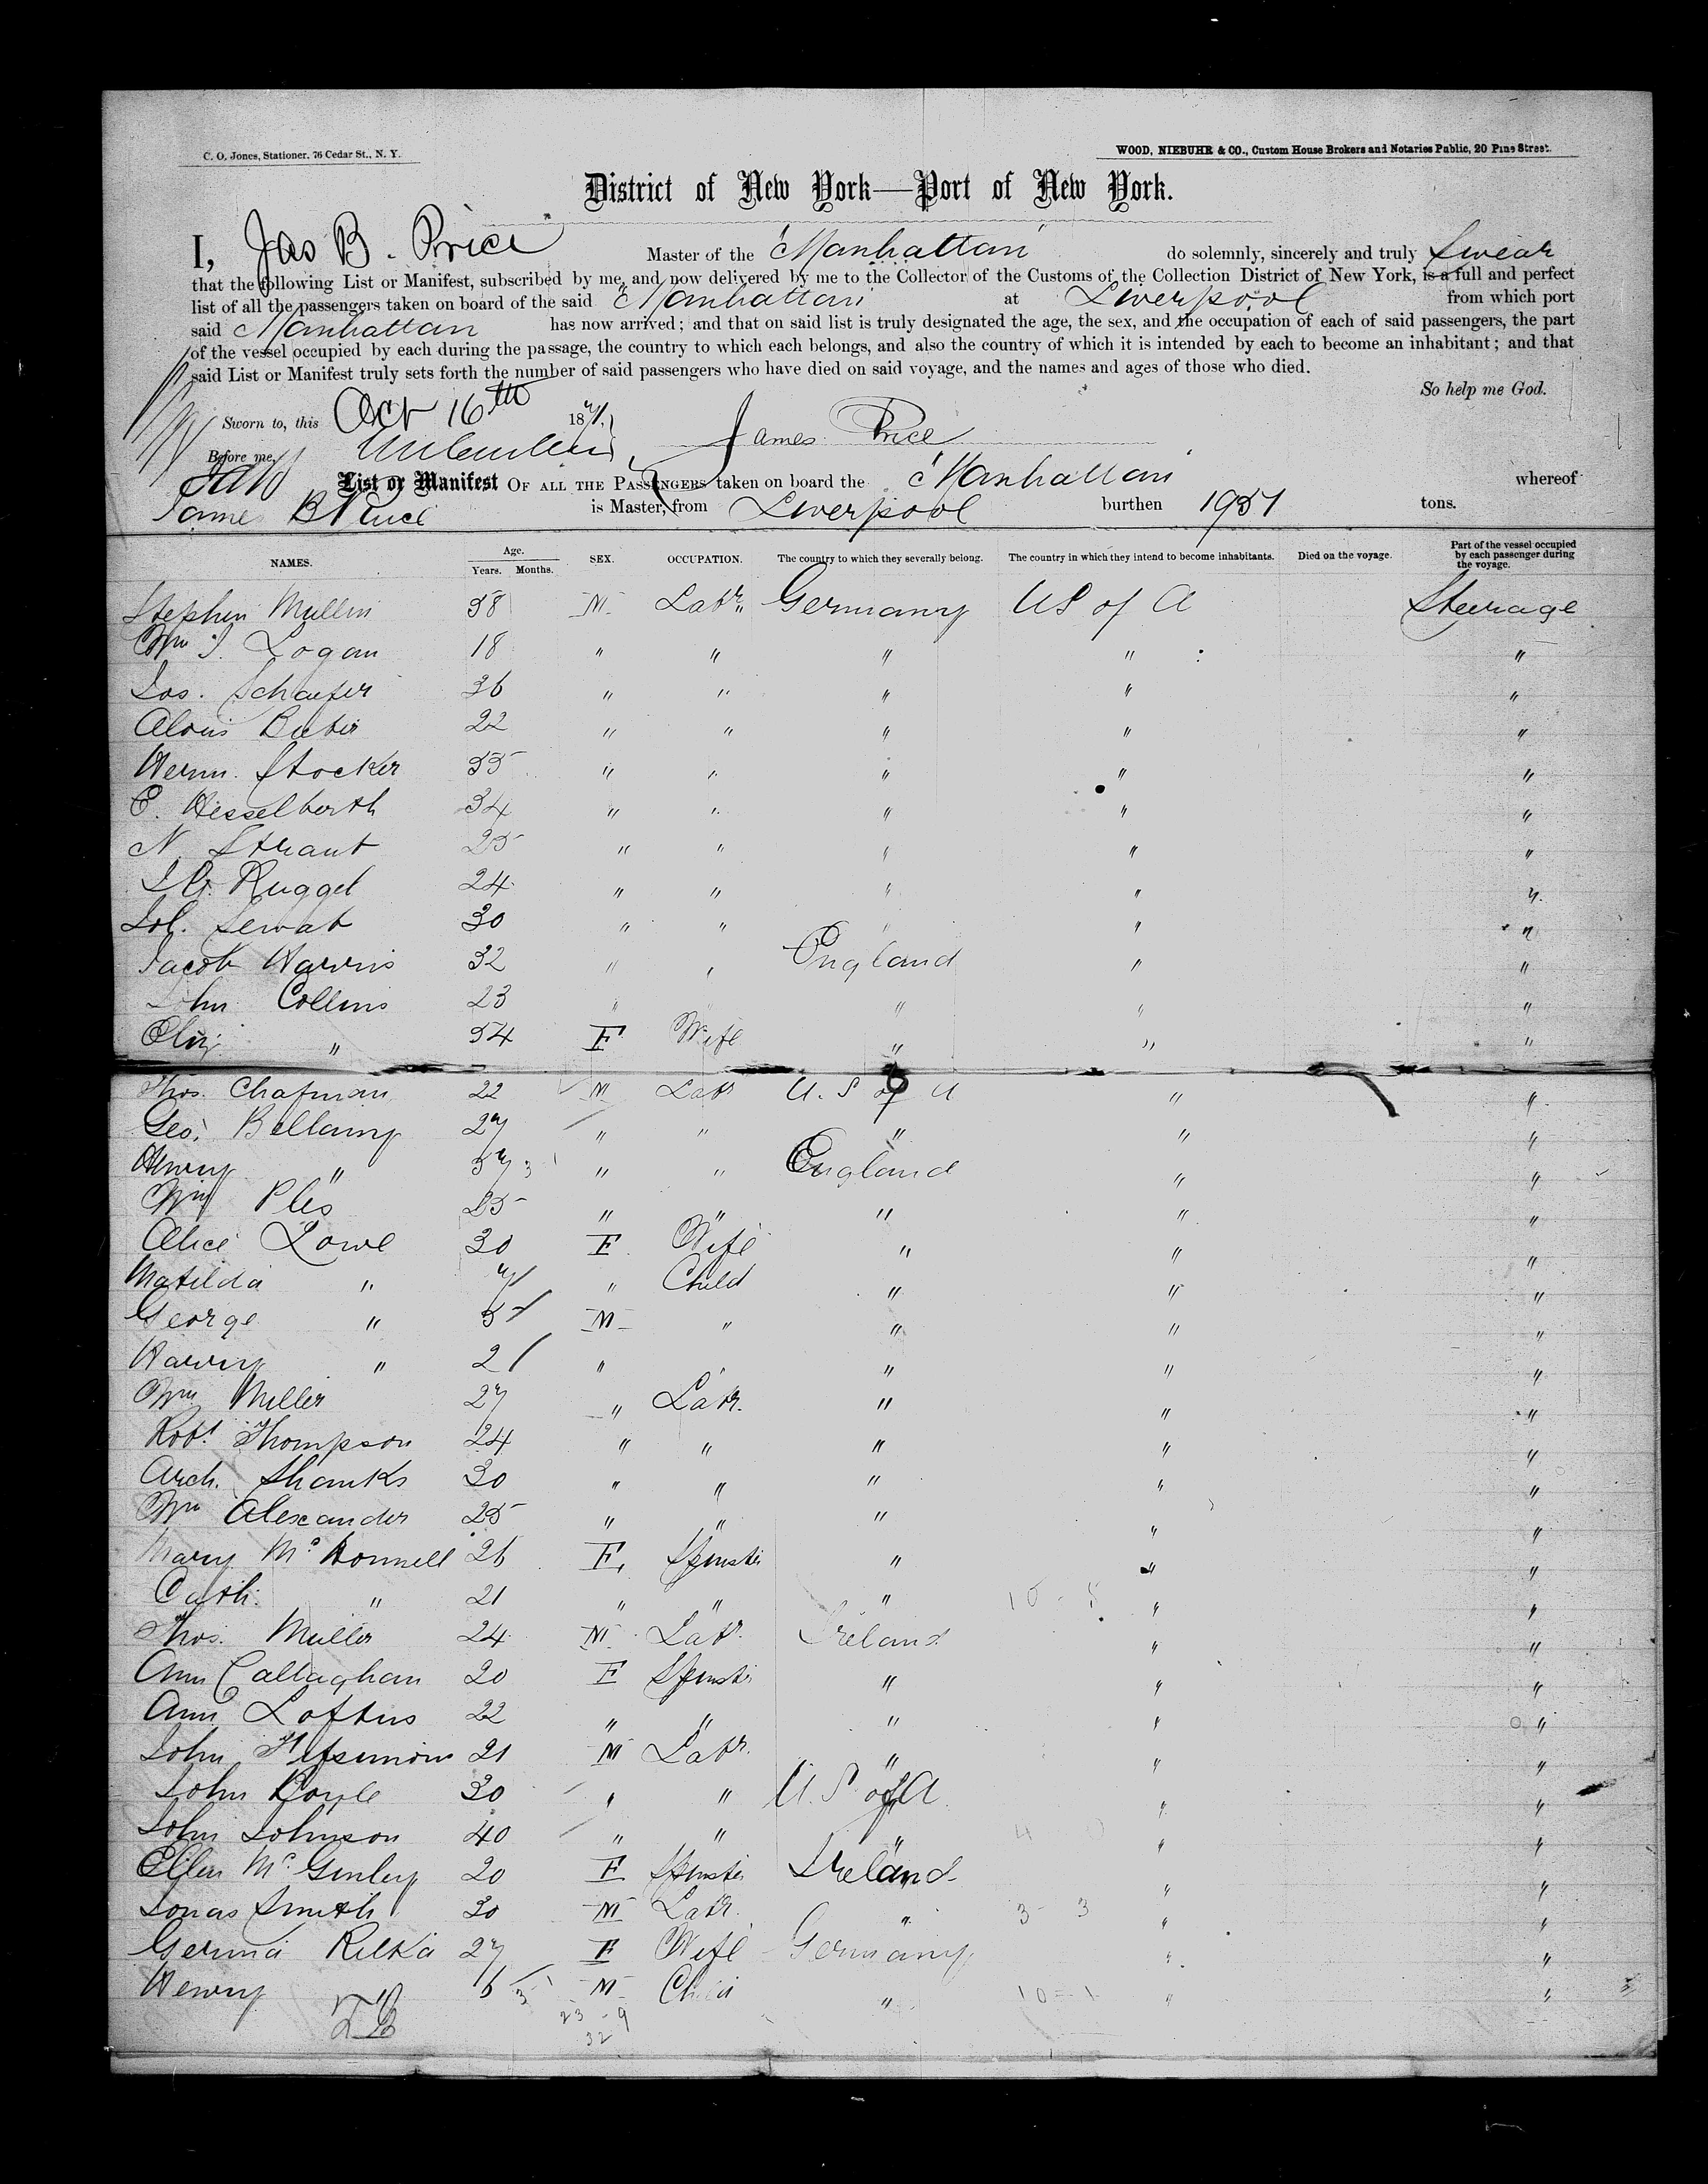 C. O. Jones, Stationer, 76 Cedar St., N. Y.
WOOD, NIEBUHR & CO., Custom House Brokers and Notaries Public, 20 Pine Street.
District of New York—Port of New York.
I, Jas B. Price Master of the "Manhattan" do solemnly, sincerely and truly Swear
that the following List or Manifest, subscribed by me, and now delivered by me to the Collector of the Customs of the Collection District of New York, is a full and perfect
list of all the passengers taken on board of the said Manhattan at Liverpool from which port
said Manhattan has now arrived; and that on said list is truly designated the age, the sex, and the occupation of each of said passengers, the part
of the vessel occupied by each during the passage, the country to which each belongs, and also the country of which it is intended by each to become an inhabitant; and that
said List or Manifest truly sets forth the number of said passengers who have died on said voyage, and the names and ages of those who died.
So help me God.
Sworn to, this Oct 16th 1871,
James Price
Before me,
List or Manifest OF ALL THE PASSENGERS taken on board the "Manhattan" whereof
James B Price is Master, from Liverpool burthen tons.
NAMES. Age. Years. Months. SEX. OCCUPATION. The country to which they severally belong. The country in which they intend to become inhabitants. Died on the voyage. Part of the vessel occupied by each passenger during the voyage.
Stephen Mullen 38 M Labr. Germany US of A Steerage
Wm J. Logan 18 " " " " "
Jos. Schaefer 36 " " " " "
Alois 22 " " " " "
Herm. Stocker 35 " " " " "
E. Hesselberth 34 " " " " "
N. 25 " " " " "
24 " " " " "
30 " " " " "
Jacob Harris 32 " " England " "
John Collins 23 " " " " "
Eliz " 54 F Wife " " "
Thos. Chapman 22 M Labr U. S of A " "
Geo. Bellamy 27 " " " " "
Henry " " " England " "
Wm 25 " " " " "
Alice Lowe 30 F Wife " " "
Matilda " 7 " Child " " "
George " 5 M " " " "
Harry " 2 " " " " "
Wm Miller 27 " Labr. " " "
Robt. Thompson 24 " " " " "
Arch. Shanks 30 " " " " "
Wm Alexander 25 " " " " "
Mary McDonnell 26 F. Spinster " " "
Cath. " 21 " " " " "
Thos. Muller 24 M Labr. Ireland " "
Ann Callaghan 20 F Spinster " " "
Ann Loftus 22 " " " " "
John Fitzsimons 21 M Labr. " " "
John 30 " " U. S of A " "
John Johnson 40 " " " " "
Ellen McGinley 20 F Spinster Ireland " "
Jonas Smith 30 M Labr. " " "
Rilka 27 F Wife Germany " "
Henry " 6 M Child " " "
23 - 9
32